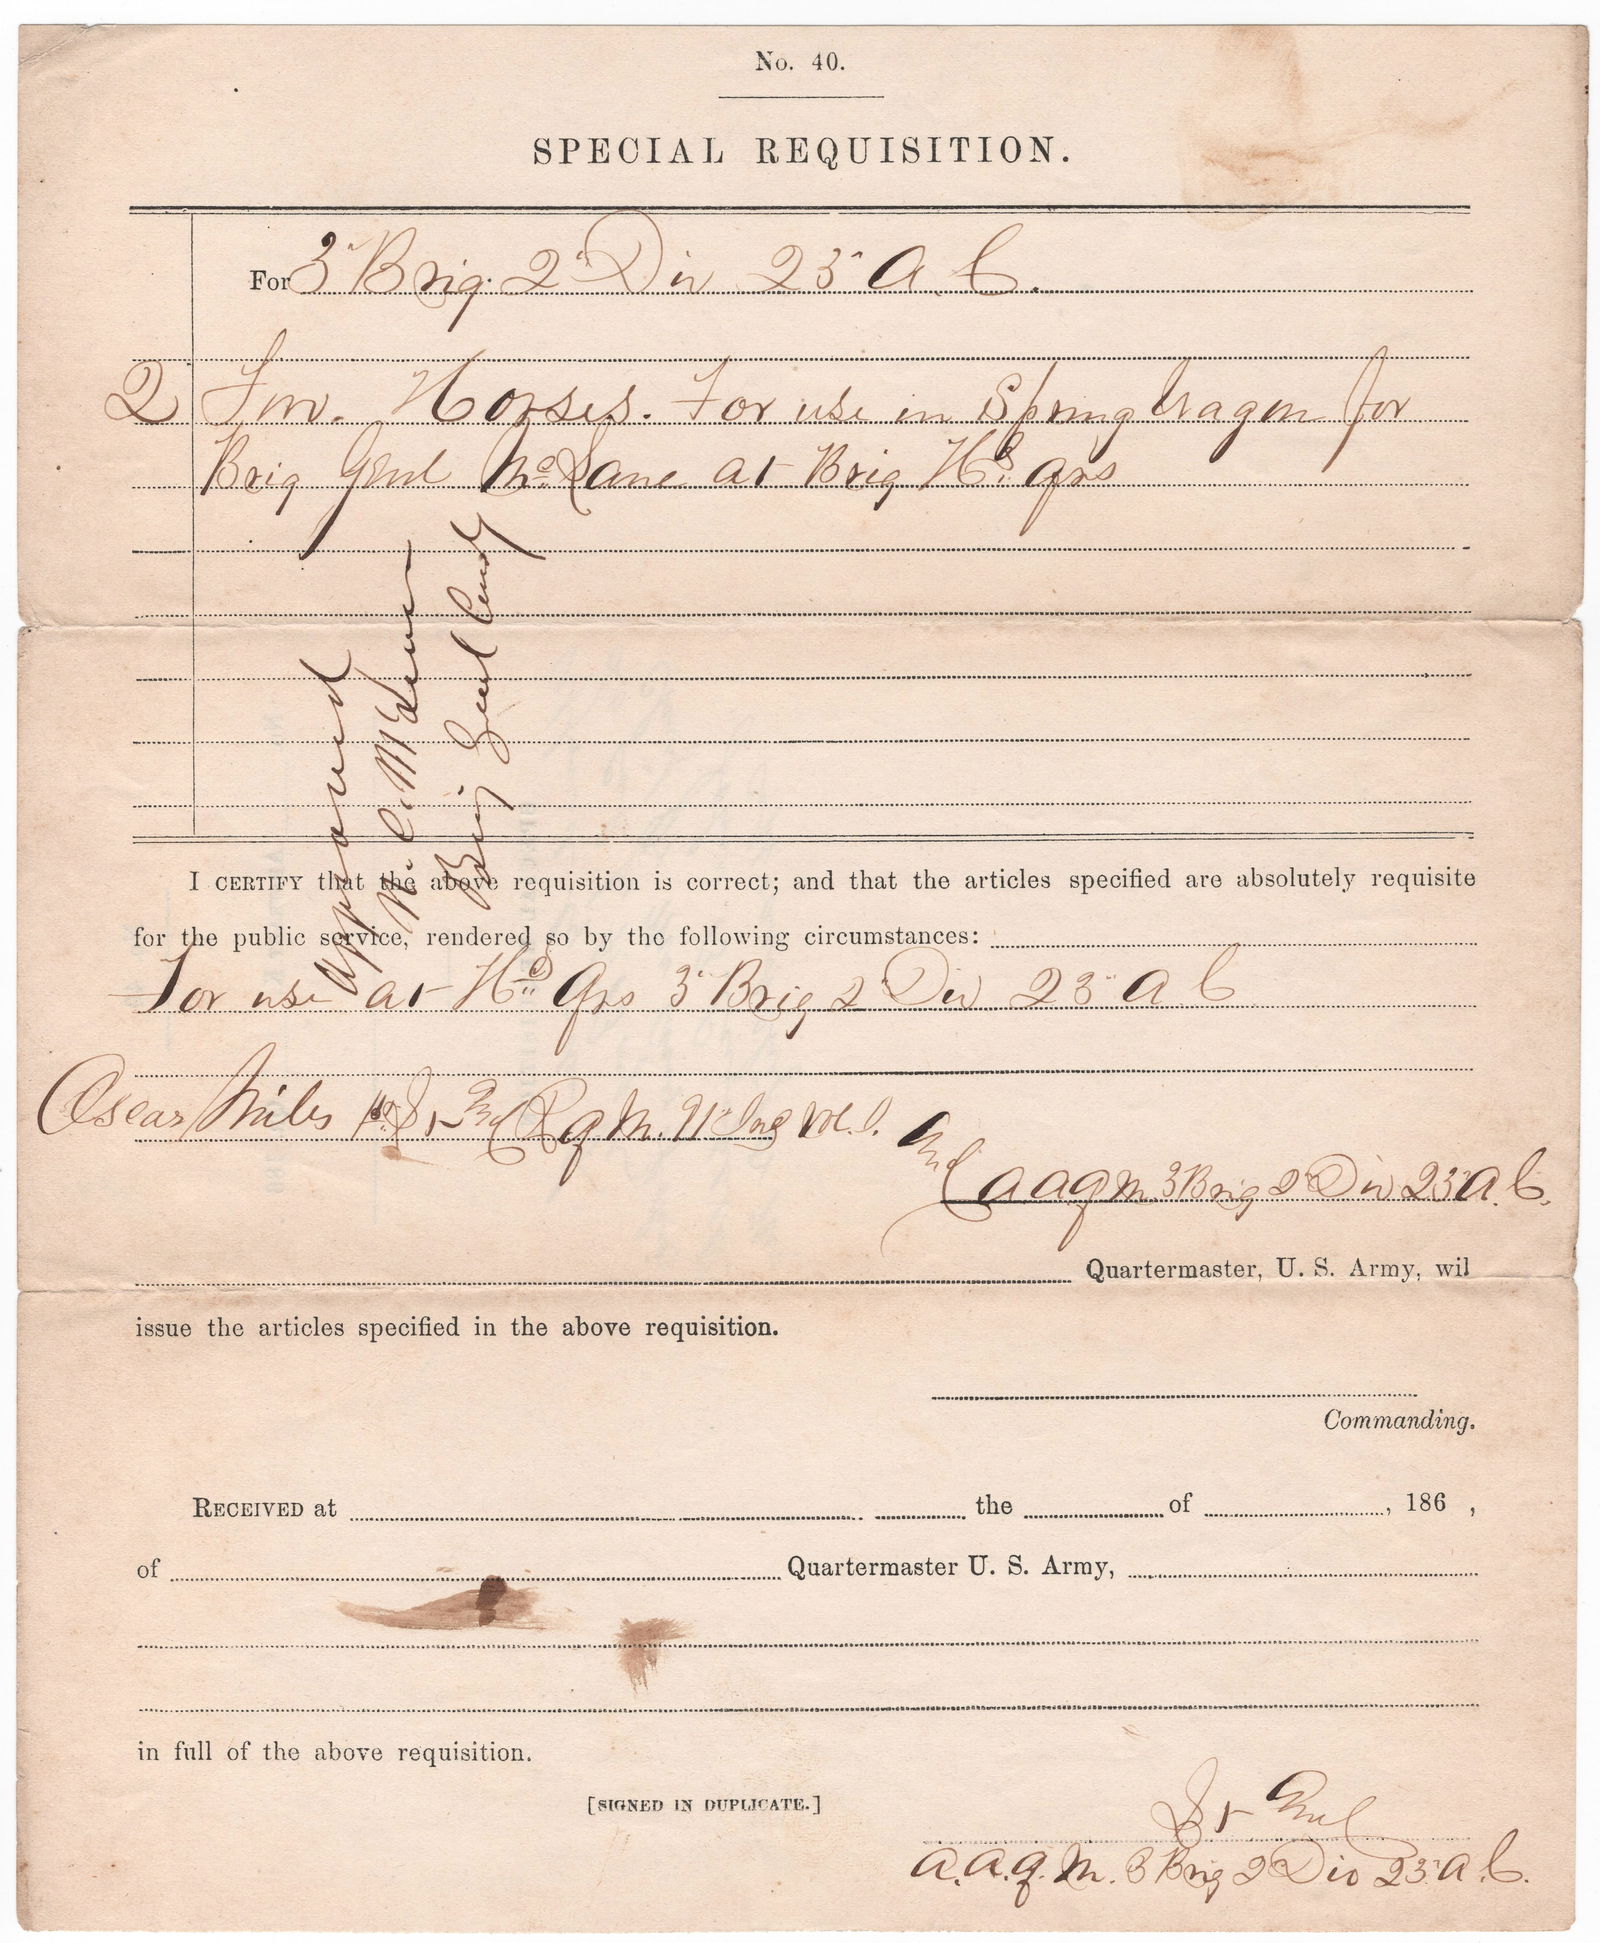 No. 40.
SPECIAL REQUISITION.
For 3" Brig. 2" Div 23" A. C.
2 Two. Horses. For use in Spring Wagon for
Brig Genl McLane at Brig Hd. Qrs
Approved
N. C. McLean
Brig Genl Comdg
I CERTIFY that the above requisition is correct; and that the articles specified are absolutely requisite
for the public service, rendered so by the following circumstances:
For use at Hd. Qrs 3" Brig 2" Div 23" A C
Oscar Miles 1st Lt and R Q M. 91" Ind Vol. I. And
A A Q M. 3 Brig 2" Div 23" A. C.
Quartermaster, U. S. Army, wil
issue the articles specified in the above requisition.
Commanding.
RECEIVED at the of , 186 ,
of Quartermaster U. S. Army,
in full of the above requisition.
[SIGNED IN DUPLICATE.]
Lt And
A. A. Q. M. 3 Brig 2 Div 23" A. C.